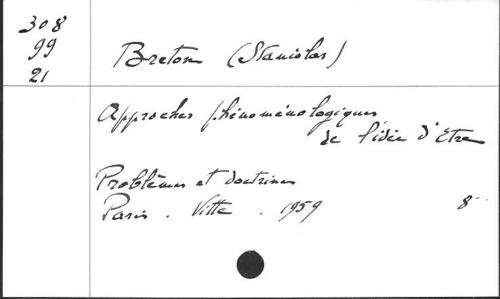 308
99
21
Breton (Stanislas)
Approches phénoménologiques
de l'idée d'Etre
Problèmes et doctrines
Paris . Vitte . 1959 8°